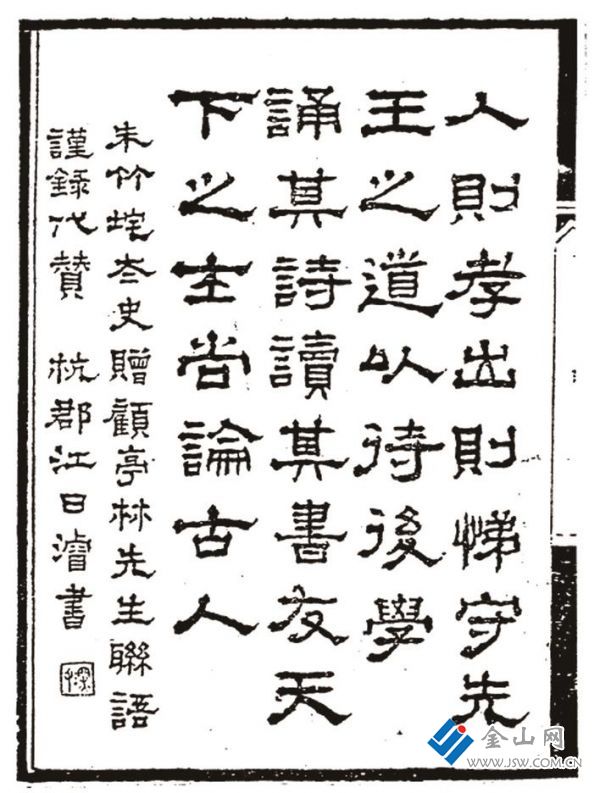 入則孝出則悌守先
王之道以待後學
誦其詩讀其書友天
下之士尚論古人
朱竹垞太史贈顧亭林先生聯語
謹錄代贊　杭郡江日濬書
金山网
WWW.JSW.COM.CN